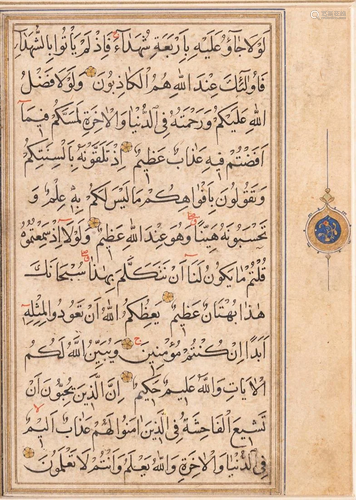 لَوْلَا جَاؤُ عَلَيْهِ بِأَرْبَعَةِ شُهَدَاءَ فَإِذْ لَمْ يَأْتُوا بِالشُّهَدَاءِ
فَأُولَٰئِكَ عِنْدَ اللَّهِ هُمُ الْكَاذِبُونَ وَلَوْلَا فَضْلُ
اللَّهِ عَلَيْكُمْ وَرَحْمَتُهُ فِي الدُّنْيَا وَالْآخِرَةِ لَمَسَّكُمْ فِيمَا
أَفَضْتُمْ فِيهِ عَذَابٌ عَظِيمٌ إِذْ تَلَقَّوْنَهُ بِأَلْسِنَتِكُمْ
وَتَقُولُونَ بِأَفْوَاهِكُمْ مَا لَيْسَ لَكُمْ بِهِ عِلْمٌ وَ
تَحْسَبُونَهُ هَيِّنًا وَهُوَ عِنْدَ اللَّهِ عَظِيمٌ وَلَوْلَا إِذْ سَمِعْتُمُوهُ
قُلْتُمْ مَا يَكُونُ لَنَا أَنْ نَتَكَلَّمَ بِهَٰذَا سُبْحَانَكَ
هَٰذَا بُهْتَانٌ عَظِيمٌ يَعِظُكُمُ اللَّهُ أَنْ تَعُودُوا لِمِثْلِهِ
أَبَدًا إِنْ كُنْتُمْ مُؤْمِنِينَ وَيُبَيِّنُ اللَّهُ لَكُمُ
الْآيَاتِ وَاللَّهُ عَلِيمٌ حَكِيمٌ إِنَّ الَّذِينَ يُحِبُّونَ أَنْ
تَشِيعَ الْفَاحِشَةُ فِي الَّذِينَ آمَنُوا لَهُمْ عَذَابٌ أَلِيمٌ
فِي الدُّنْيَا وَالْآخِرَةِ وَاللَّهُ يَعْلَمُ وَأَنْتُمْ لَا تَعْلَمُونَ